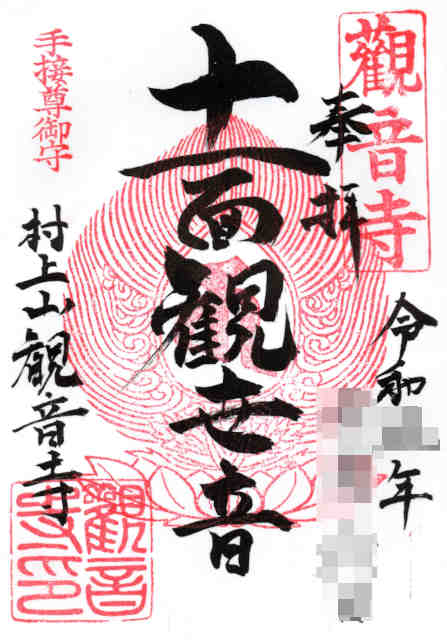 觀音寺
奉拝
令和 年
十一面観世音
手接尊御守
村上山観音寺
觀音寺印